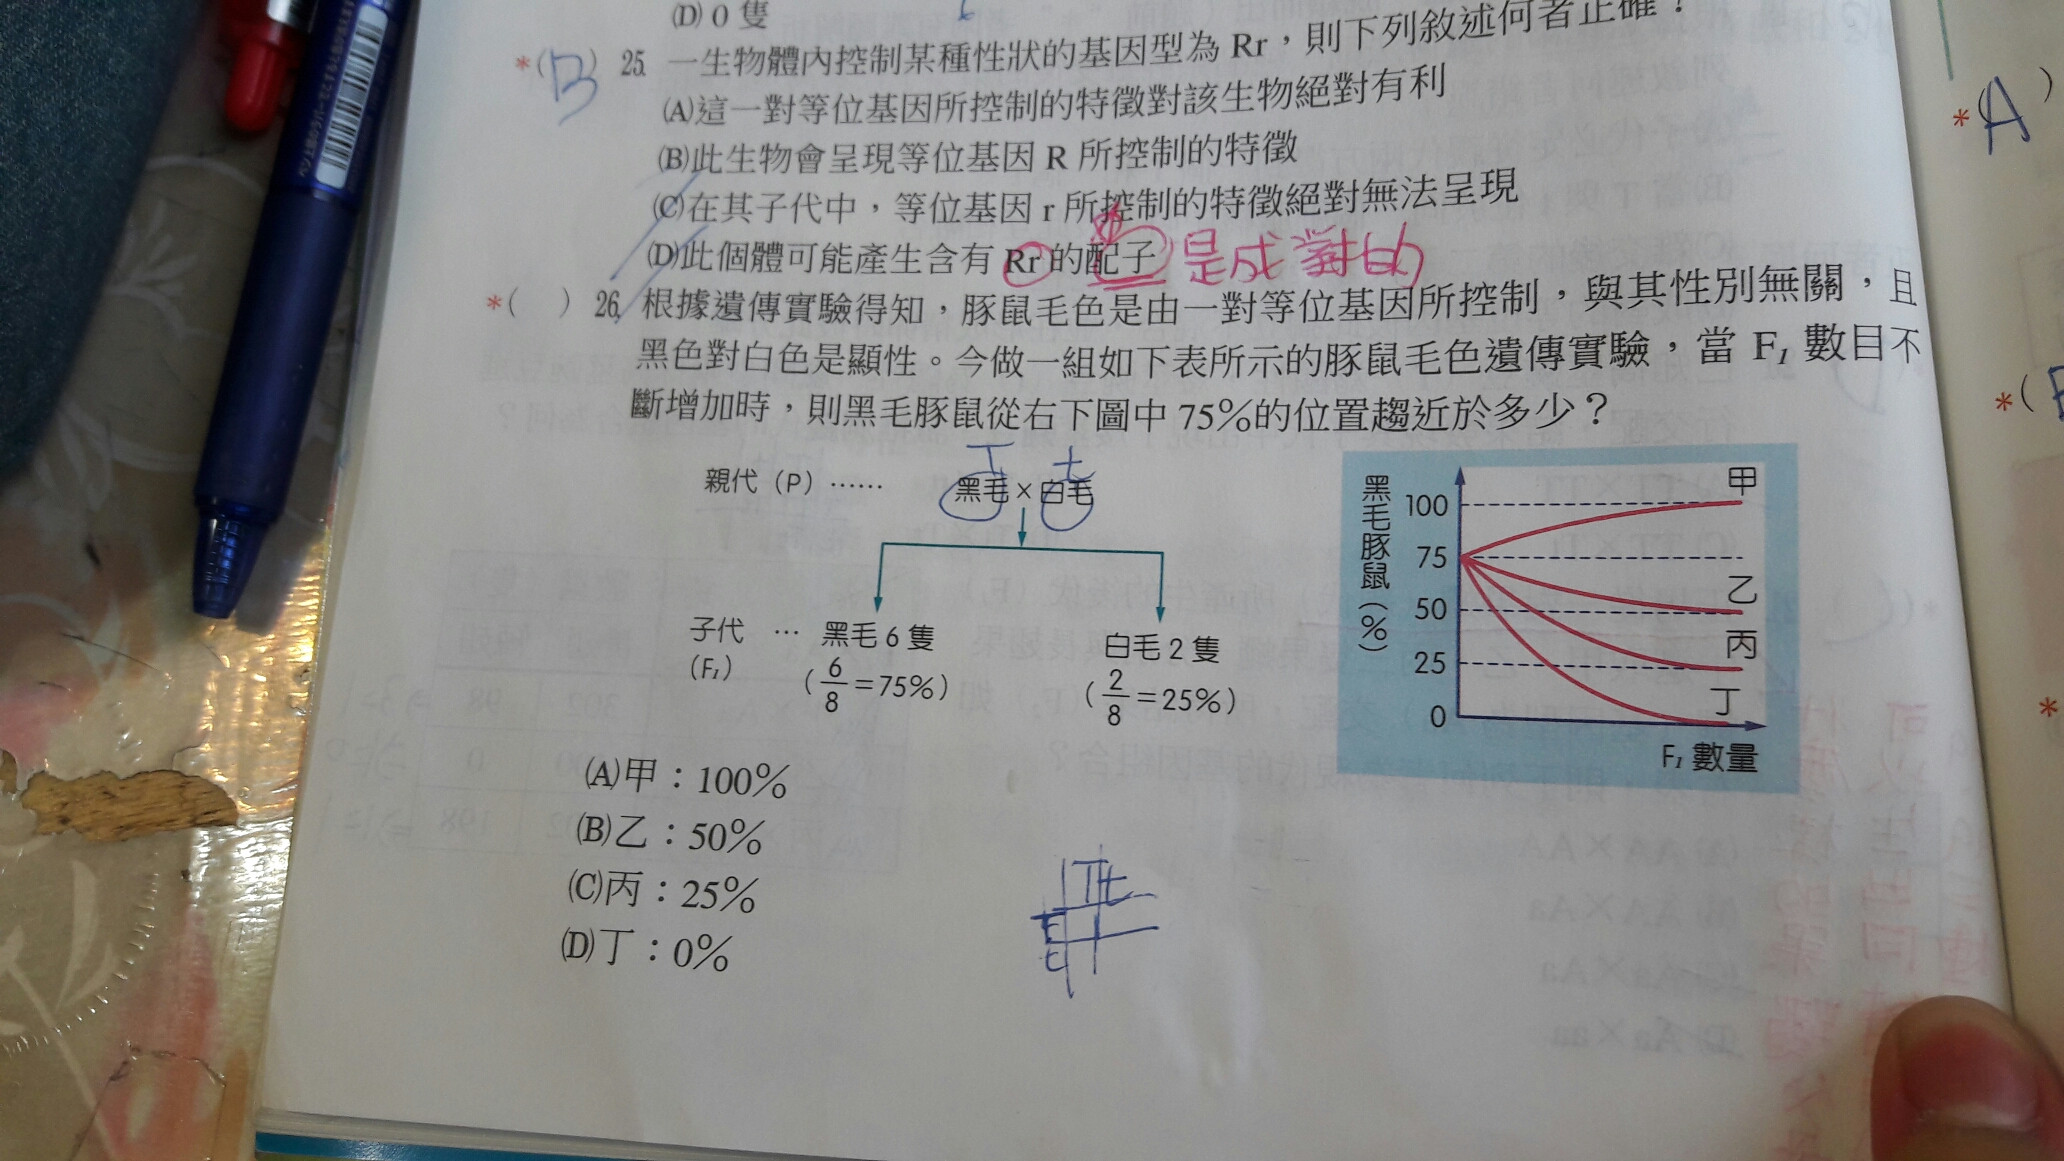 (D) 0 隻
*(B) 25. 一生物體內控制某種性狀的基因型為 Rr，則下列敘述何者正確？
(A)這一對等位基因所控制的特徵對該生物絕對有利
(B)此生物會呈現等位基因 R 所控制的特徵
(C)在其子代中，等位基因 r 所控制的特徵絕對無法呈現
(D)此個體可能產生含有 Rr 的配子 是成對的
*( ) 26. 根據遺傳實驗得知，豚鼠毛色是由一對等位基因所控制，與其性別無關，且
黑色對白色是顯性。今做一組如下表所示的豚鼠毛色遺傳實驗，當 F₁ 數目不
斷增加時，則黑毛豚鼠從右下圖中 75%的位置趨近於多少？
T t
親代（P）…… 黑毛×白毛
子代 … 黑毛 6 隻 白毛 2 隻
（F₁） （6/8=75%） （2/8=25%）
黑毛豚鼠（%）
100 甲
75
50 乙
25 丙
0 丁
F₁ 數量
(A)甲：100%
(B)乙：50%
(C)丙：25%
(D)丁：0%
T t
t
t
*(A)
*(B
*